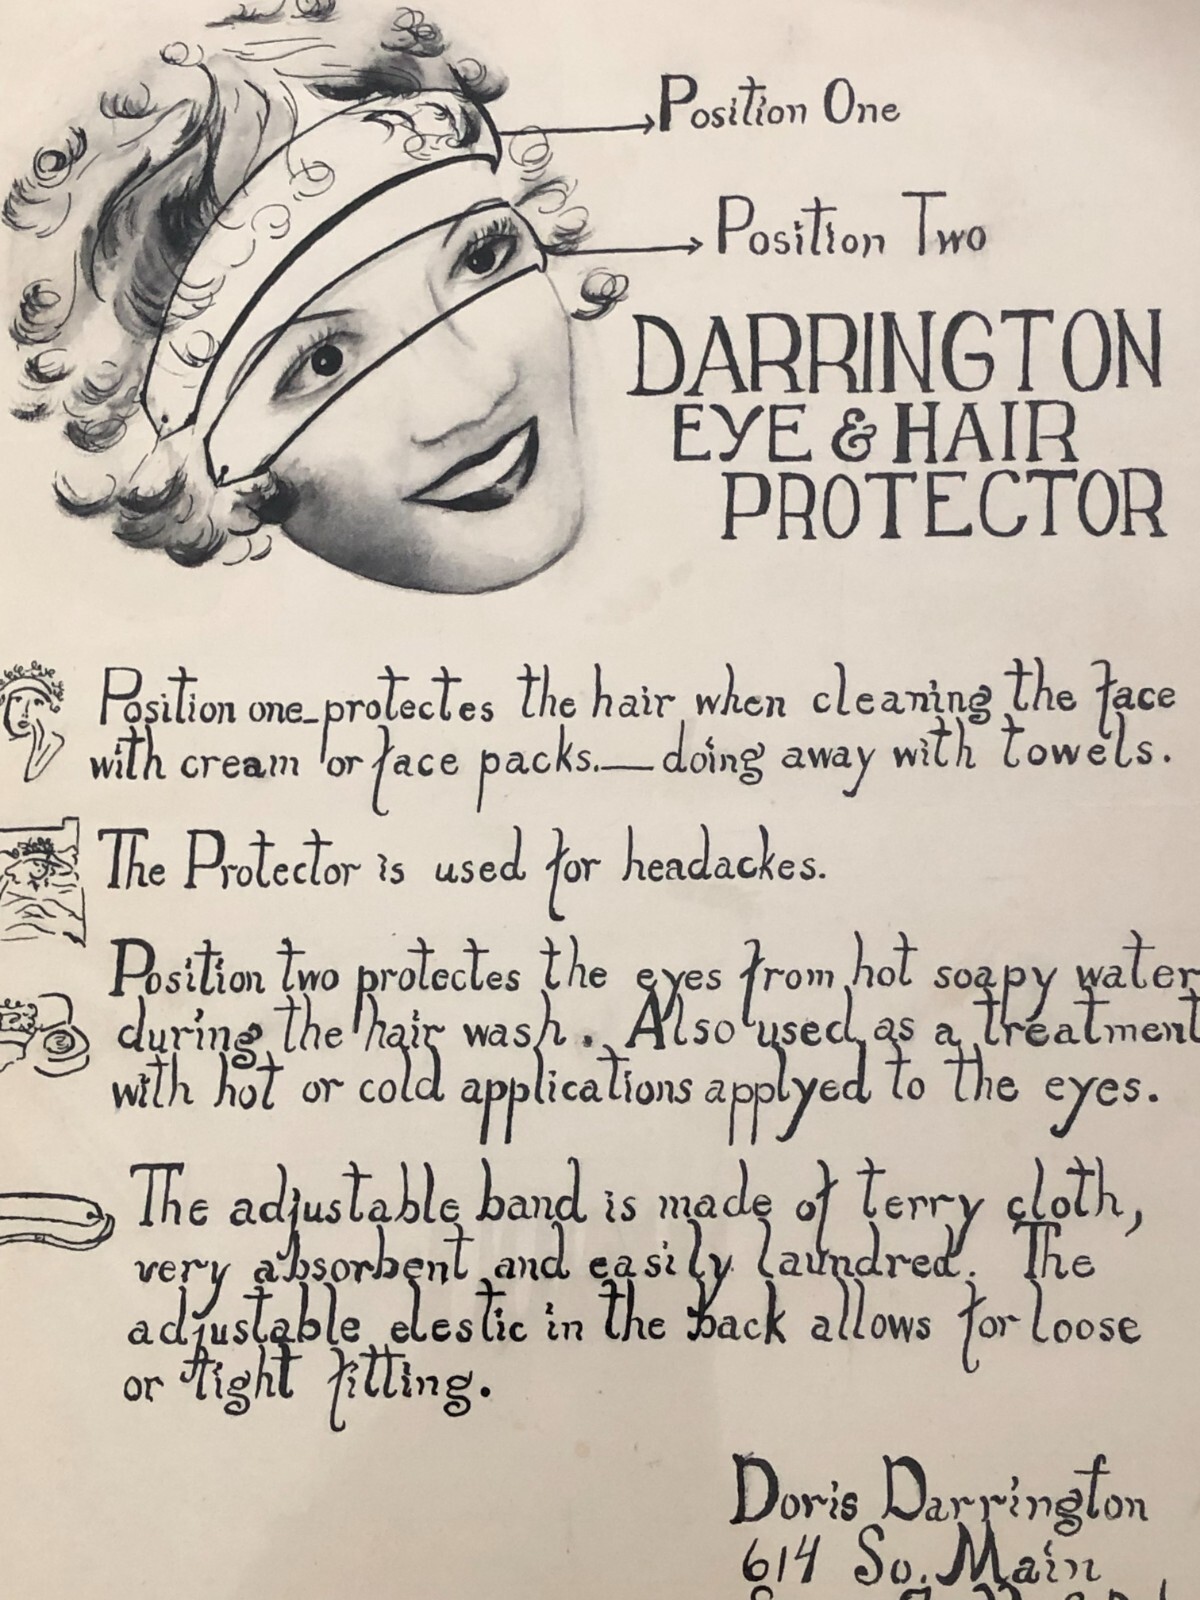 Position One
Position Two
DARRINGTON
EYE & HAIR
PROTECTOR
Position one—protectes the hair when cleaning the face
with cream or face packs.—doing away with towels.
The Protector is used for headackes.
Position two protectes the eyes from hot soapy water
during the hair wash. Also used as a treatment
with hot or cold applications applyed to the eyes.
The adjustable band is made of terry cloth,
very absorbent and easily laundred. The
adjustable elestic in the back allows for loose
or tight fitting.
Doris Darrington
614 So. Main